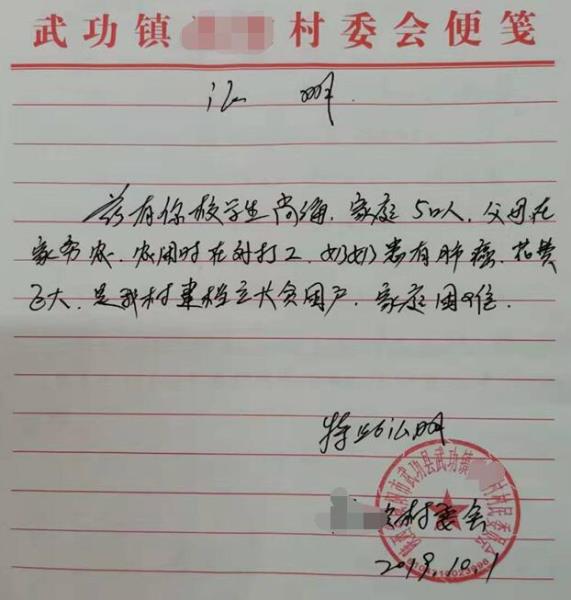 武功镇 村委会便笺
证 明
兹有你校学生尚海,家庭5口人,父母在
家务农,农闲时在外打工,奶奶患有肺癌,花费
巨大,是我村建档立卡贫困户,家庭困难.
特此证明
武功县武功镇 村村民委员会
村委会
2019.10.1